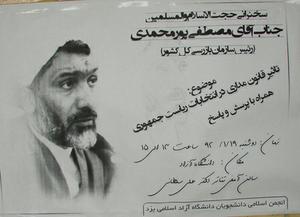 سخنرانی حجت الاسلام والمسلمین
جناب آقای مصطفی پورمحمدی
(رئیس سازمان بازرسی کل کشور)
موضوع:
تاثیر قانون مداری در انتخابات ریاست جمهوری
همراه با پرسش و پاسخ
زمان: دوشنبه ۹۲/۱/۱۹ ساعت ۱۳ الی ۱۵
مکان: دانشگاه آزاد
سالن آمفی تئاتر دکتر علی سلطانی
انجمن اسلامی دانشجویان دانشگاه آزاد اسلامی یزد